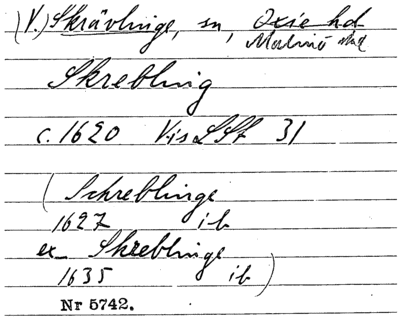 (V.) Skrävlinge, sn, Oxie hd
Malmö stad
Skrebling
c. 1620 Vis LSt 31
(Schreblinge
1627 ib
ex Skreblinge
1635 ib)
Nr 5742.